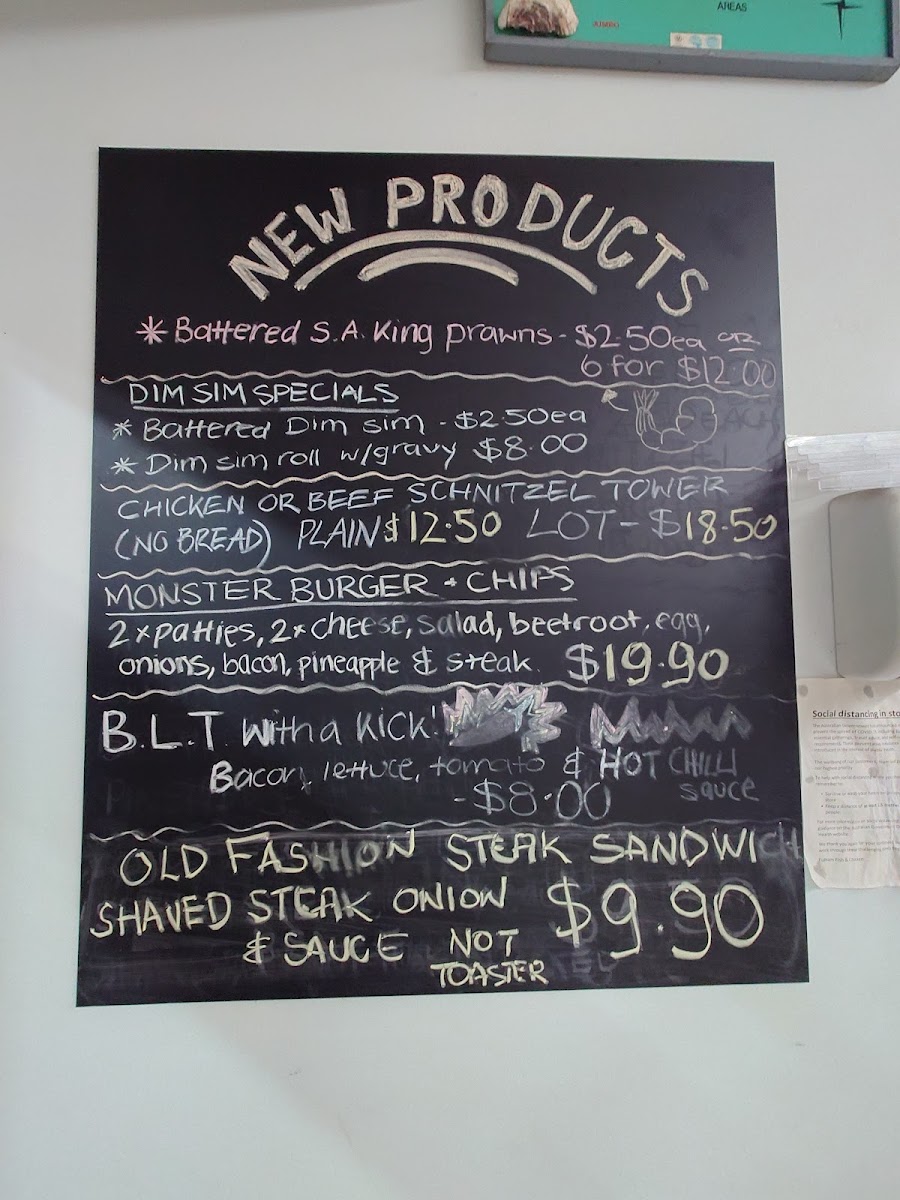 AREAS
JUMBO
NEW PRODUCTS
* Battered S.A. King prawns - $2.50ea OR
6 for $12.00
DIM SIM SPECIALS
* Battered Dim sim - $2.50ea
* Dim sim roll w/gravy $8.00
CHICKEN OR BEEF SCHNITZEL TOWER
(NO BREAD) PLAIN $12.50 LOT - $18.50
MONSTER BURGER + CHIPS
2x patties, 2x cheese, salad, beetroot, egg,
onions, bacon, pineapple & steak $19.90
B.L.T. with a kick!
Bacon, lettuce, tomato & HOT CHILLI
sauce
- $8.00
OLD FASHION STEAK SANDWICH
SHAVED STEAK ONION $9.90
& SAUCE NOT
TOASTER
Social distancing in sto